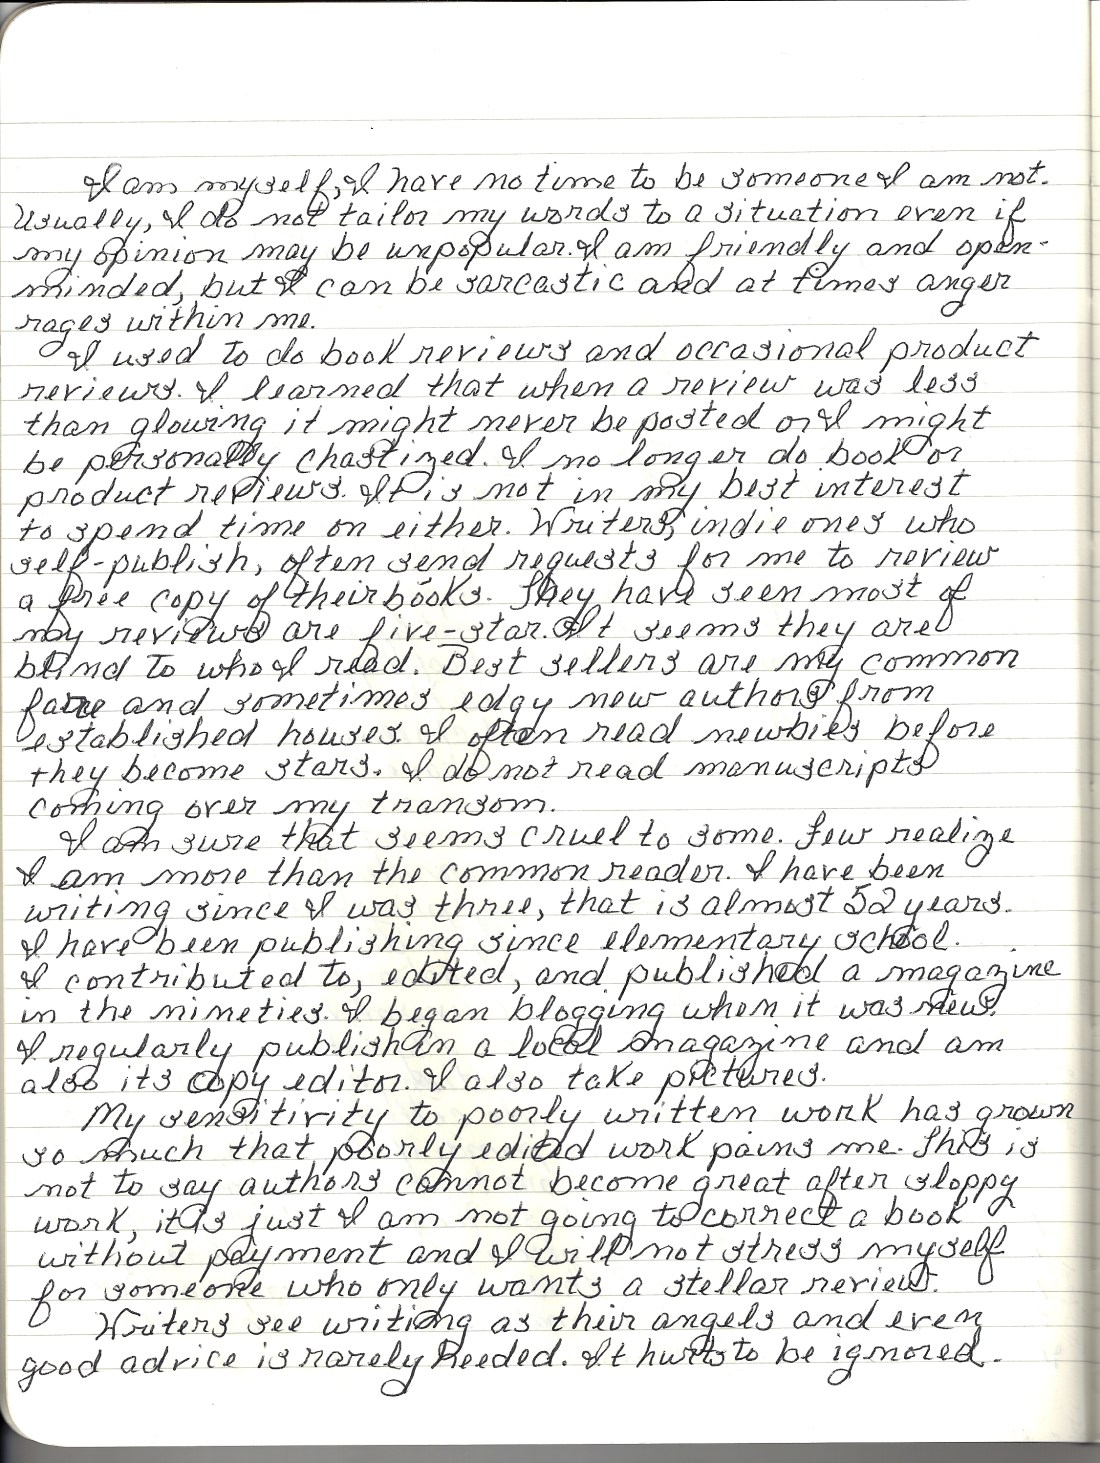 I am myself, I have no time to be someone I am not.
Usually, I do not tailor my words to a situation even if
my opinion may be unpopular. I am friendly and open-
minded, but I can be sarcastic and at times anger
rages within me.
I used to do book reviews and occasional product
reviews. I learned that when a review was less
than glowing it might never be posted or I might
be personally chastized. I no longer do book or
product reviews. It is not in my best interest
to spend time on either. Writers, indie ones who
self-publish, often send requests for me to review
a free copy of their books. They have seen most of
my reviews are five-star. It seems they are
blind to who I read. Best sellers are my common
fare and sometimes edgy new authors from
established houses. I often read newbies before
they become stars. I do not read manuscripts
coming over my transom.
I am sure that seems cruel to some. Few realize
I am more than the common reader. I have been
writing since I was three, that is almost 52 years.
I have been publishing since elementary school.
I contributed to, edited, and published a magazine
in the nineties. I began blogging when it was new.
I regularly publish in a local magazine and am
also its copy editor. I also take pictures.
My sensitivity to poorly written work has grown
so much that poorly edited work pains me. This is
not to say authors cannot become great after sloppy
work, it is just I am not going to correct a book
without payment and I will not stress myself
for someone who only wants a stellar review.
Writers see writing as their angels and even
good advice is rarely heeded. It hurts to be ignored.